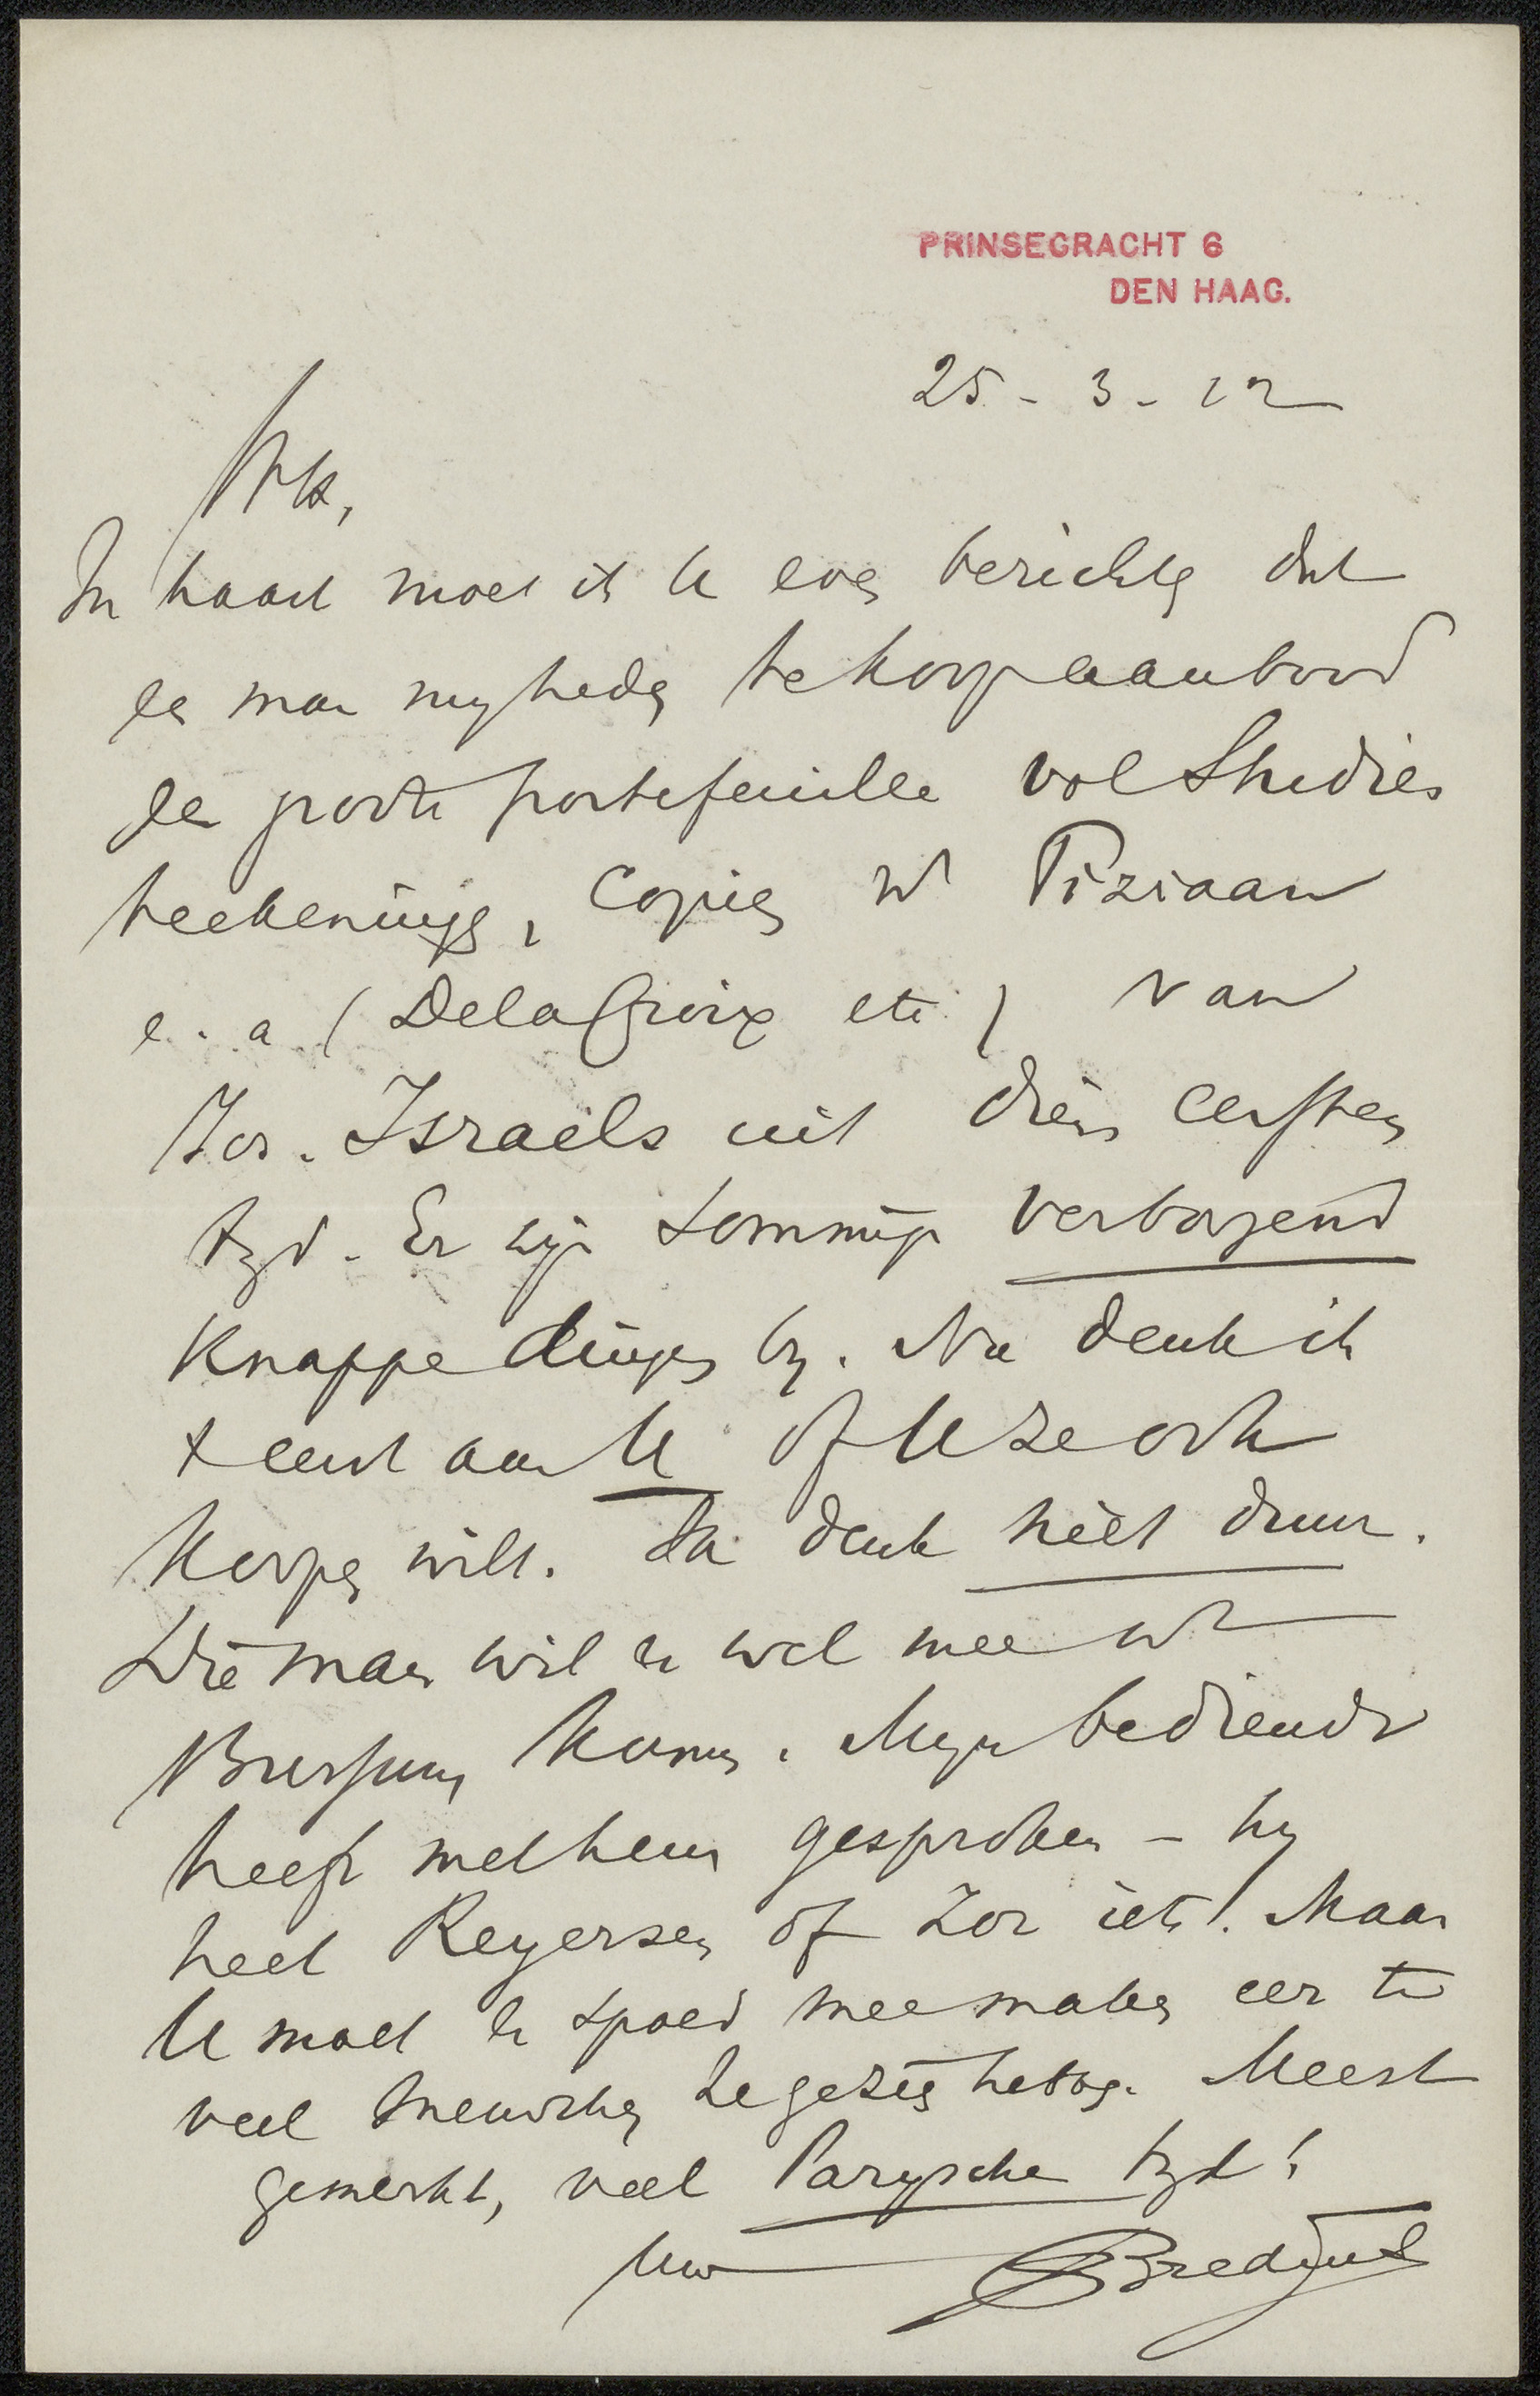 PRINSEGRACHT 6
DEN HAAG.
25-3-12
In haast moet ik U even berichten dat
een man my heden te koop aanbood
een groote portefeuille vol Studies
teekeningen, Copien nr Tiziaan
e. a. (DelaCroix etc.) van
Jos. Israëls uit diens eersten
tyd. Er zyn sommige verbazend
Knappe dingen by. Nu denk ik
't eerst aan U of U ze ook
koopen wilt. Ik denk niet duur.
Die man wil er wel mee nr
Bussum komen. Myn bediende
heeft met hem gesproken - hy
heet Reyersen of Zoo iets! Maar
U moet er spoed mee maken eer te
veel menschen ze gezien hebben. Meest
gemerkt, veel Parysche tyd!
Uw ABredius